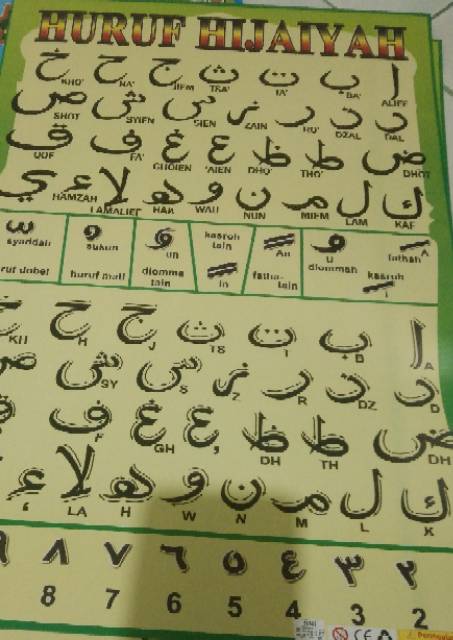 HURUF HIJAIYAH
ا ب ت ث ج ح خ
ALIEF BA' TA' TSA' JIEM HA' KHO'
د ذ ر ز س ش ص
DAL DZAL RO' ZAIN SIEN SYIEN SHOT
ض ط ظ ع غ ف ق
DHOT THO' DHO' 'AIEN GHOIEN FA' QOF
ك ل م ن و ه لا ء ي
KAF LAM MIEM NUN WAU HAK LAMALIEF HAMZAH
fathah A
kasroh I
dlommah u
fatha-tain An
kasroh tain in
dlomma tain un
sukun
huruf mati
syaddah
ا ب ت ث ج ح خ
A B T TS J H KH
د ذ ر ز س ش ص
D DZ R Z S SY
ض ط ظ ع غ ف
DH TH DH ' GH
ك ل م ن و ه لا ء
K L M N W H LA '
٢ ٣ ٤ ٥ ٦ ٧ ٨ ٩
2 3 4 5 6 7 8
CE